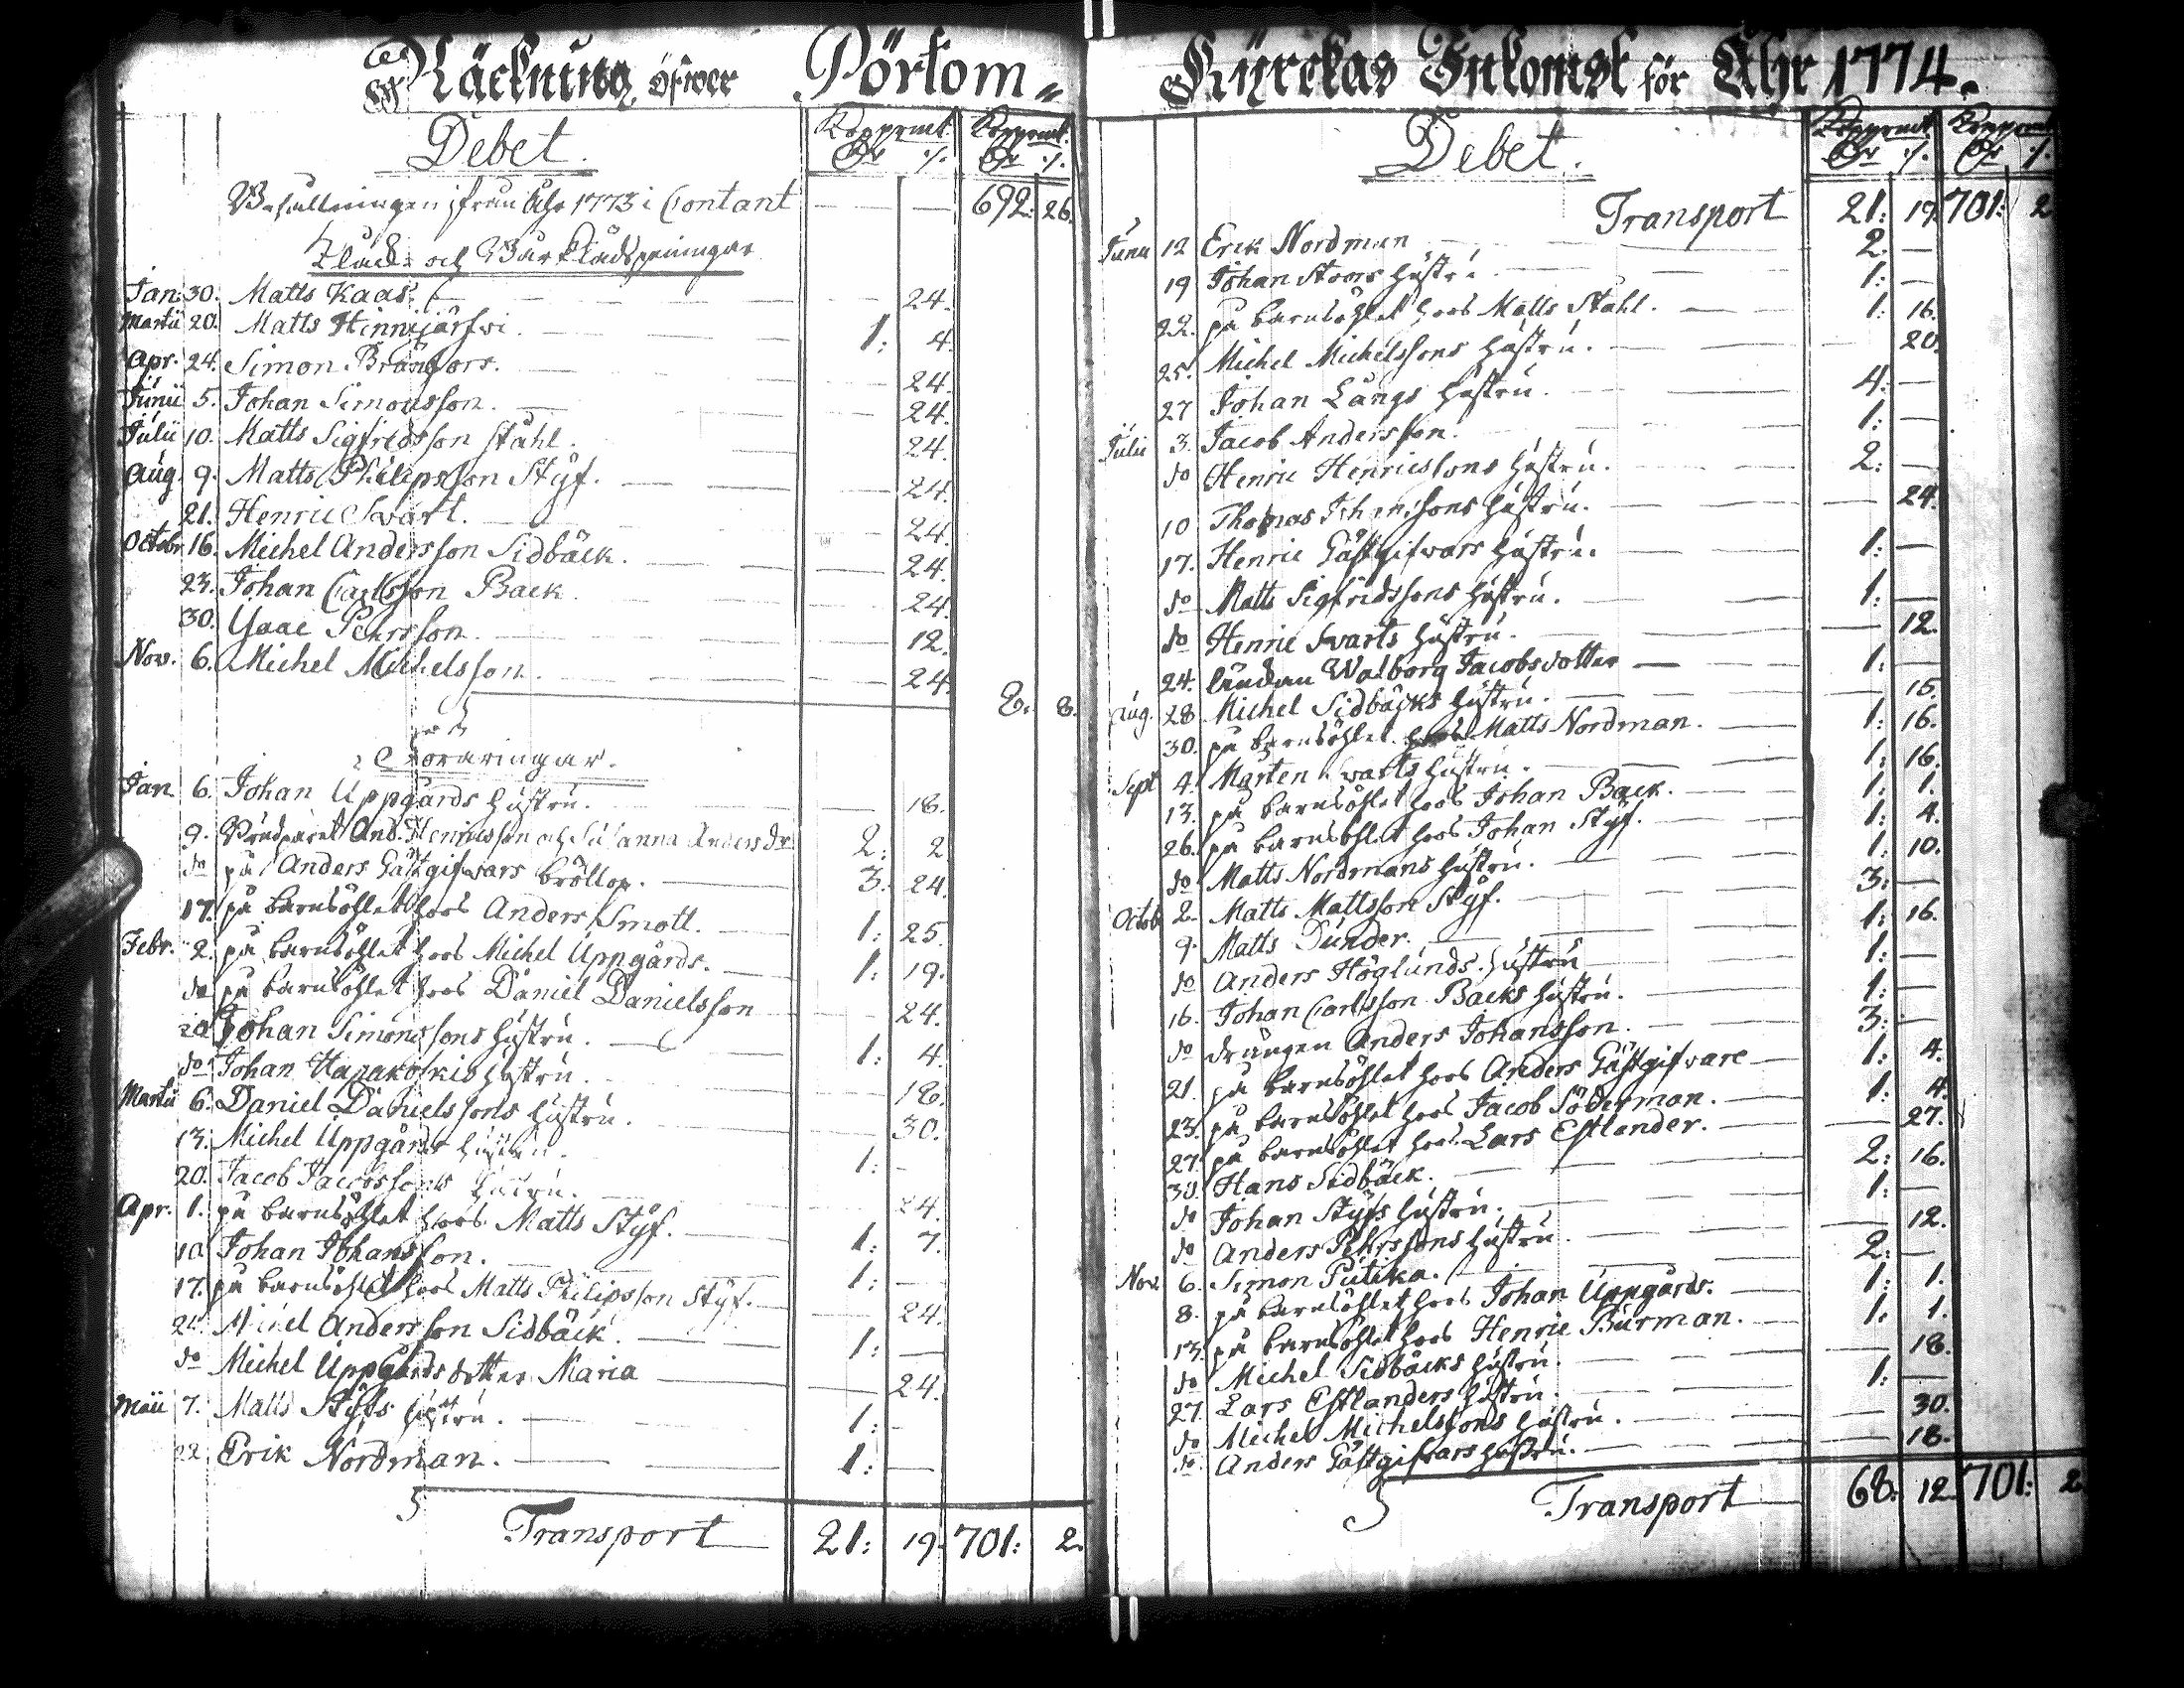 Räckning öfwer Pörtom
Debet.
Kopparmt. Kopparmt.
Behållningen ifrån Åhr 1773 i Contant — — 692: 26.
Klock- och Bårklädspenningar
Jan: 30. Matts Kaas. — 24.
Martii 20. Matts Hinnijärfwi. 1: 4.
Apr. 24. Simon Bränfors. — 24.
Junii 5. Johan Simonsson. — 24.
Julii 10. Matts Sigfredsson Ståhl. — 24.
Aug. 9. Matts Philipsson Styf. — 24.
21. Henric Svart. — 24.
Octobr 16. Michel Andersson Sidbäck. — 24.
23. Johan Carlsson Back. — 24.
30. Ysaac Pehrsson. — 12.
Nov. 6. Michel Michelsson. — 24.
8. 8.
Foraringar.
Jan. 6. Johan Uppgårds hustru. — 18.
9. Brudparet And. Henricsson och Susanna Andersdr 2: 2
do på Anders Gästgifwars bröllop. 3: 24.
17. på barnsöhlet hoos Anders Smoll. 1: 25.
Febr. 2. på barnsöhlet hoos Michel Uppgårds. 1: 19.
do på barnsöhlet hoos Daniel Danielsson — 24.
20 Johan Simonssons hustru. 1: 4.
do Johan Hapakoskis hustru. — 18.
Martii 6. Daniel Danielssons hustru. — 30.
13. Michel Uppgårds hustru. 1: —
20. Jacob Jacobssons hustru. — 24.
Apr. 1. på barnsöhlet hoos Matts Styf. 1: 7.
10 Johan Johansson. 1: —
17. på barnsöhlet hoos Matts Philipsson Styf. — 24.
24. Michel Andersson Sidbäck. 1: —
do Michel Uppgårds dotter Maria — 24.
Maii 7. Matts Styfs hustru. 1: —
22. Erik Nordman. 1: —
Transport 21: 19. 701: 2.
Kyrckas Inkomst för Åhr 1774.
Debet.
Kopparmt. Kopparmt.
Transport 21: 19. 701: 2
Junii 12 Erik Nordman 2. —
19 Johan Stoors hustru 1: —
22. på barnsöhlet hoos Matts Ståhl. 1: 16.
25. Michel Michelssons hustru. 20.
27 Johan Långs hustru. 4: —
Julii 3. Jacob Andersson. 1: —
do Henric Henricssons hustru. 2: —
10 Thomas Johanssons hustru. — 24.
17. Henric Gästgifwars hustru. 1: —
do Matts Sigfridssons hustru. 1: —
do Henric Svarts hustru. — 12.
24. Walborg Jacobsdotter — 1: —
Aug. 28 Michel Sidbäcks hustru. — 15.
30. på barnsöhlet hoos Matts Nordman. 1: 16.
Sept 4. Mårten Svarts hustru. 1: 16.
13. på barnsöhlet hoos Johan Back. 1: 1.
26. på barnsöhlet hoos Johan Styf. 1: 4.
do Matts Nordmans hustru. 1: 10.
Octob 2. Matts Mattsson Styf. 3: —
9. Matts Dunder. 1: 16.
do Anders Höglunds hustru 1: —
16. Johan Carlsson Backs hustru. 1: —
do drängen Anders Johansson. 3: —
21. på barnsöhlet hoos Anders Gästgifvare 1: 4.
23. på barnsöhlet hoos Jacob Söderman. 1: 4.
27. på barnsöhlet hoos Lars Estlander. — 27.
30. Hans Sidbäck. 2: 16.
do Johan Styfs hustru. 1: —
do Anders Pehrssons hustru. — 12.
Nov. 6. Simon Putika. 2: —
8. på barnsöhlet hoos Johan Uppgårds. 1: 1.
13. på barnsöhlet hoos Henric Burman. 1. 1.
do Michel Sidbäcks hustru. — 18.
27. Lars Estlanders hustru. 1: —
do Michel Michelssons hustru. — 30.
do Anders Gästgifvars hustru. — 18.
Transport 68: 12. 701: 2